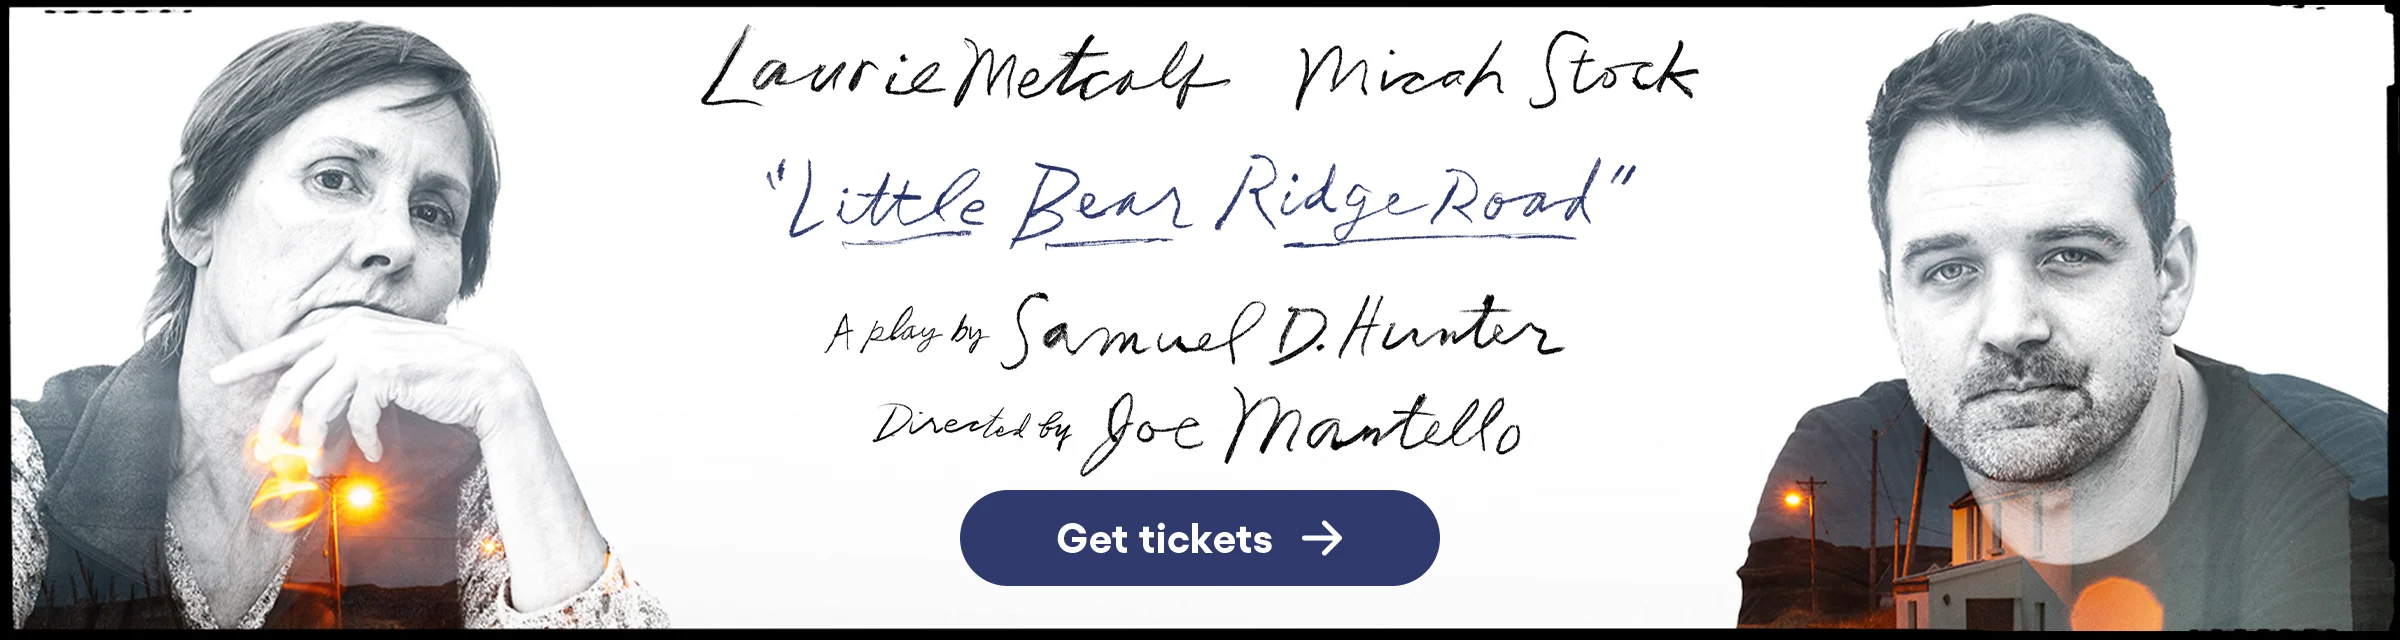 Laurie Metcalf Micah Stock
"Little Bear Ridge Road"
A play by Samuel D. Hunter
Directed by Joe Mantello
Get tickets →